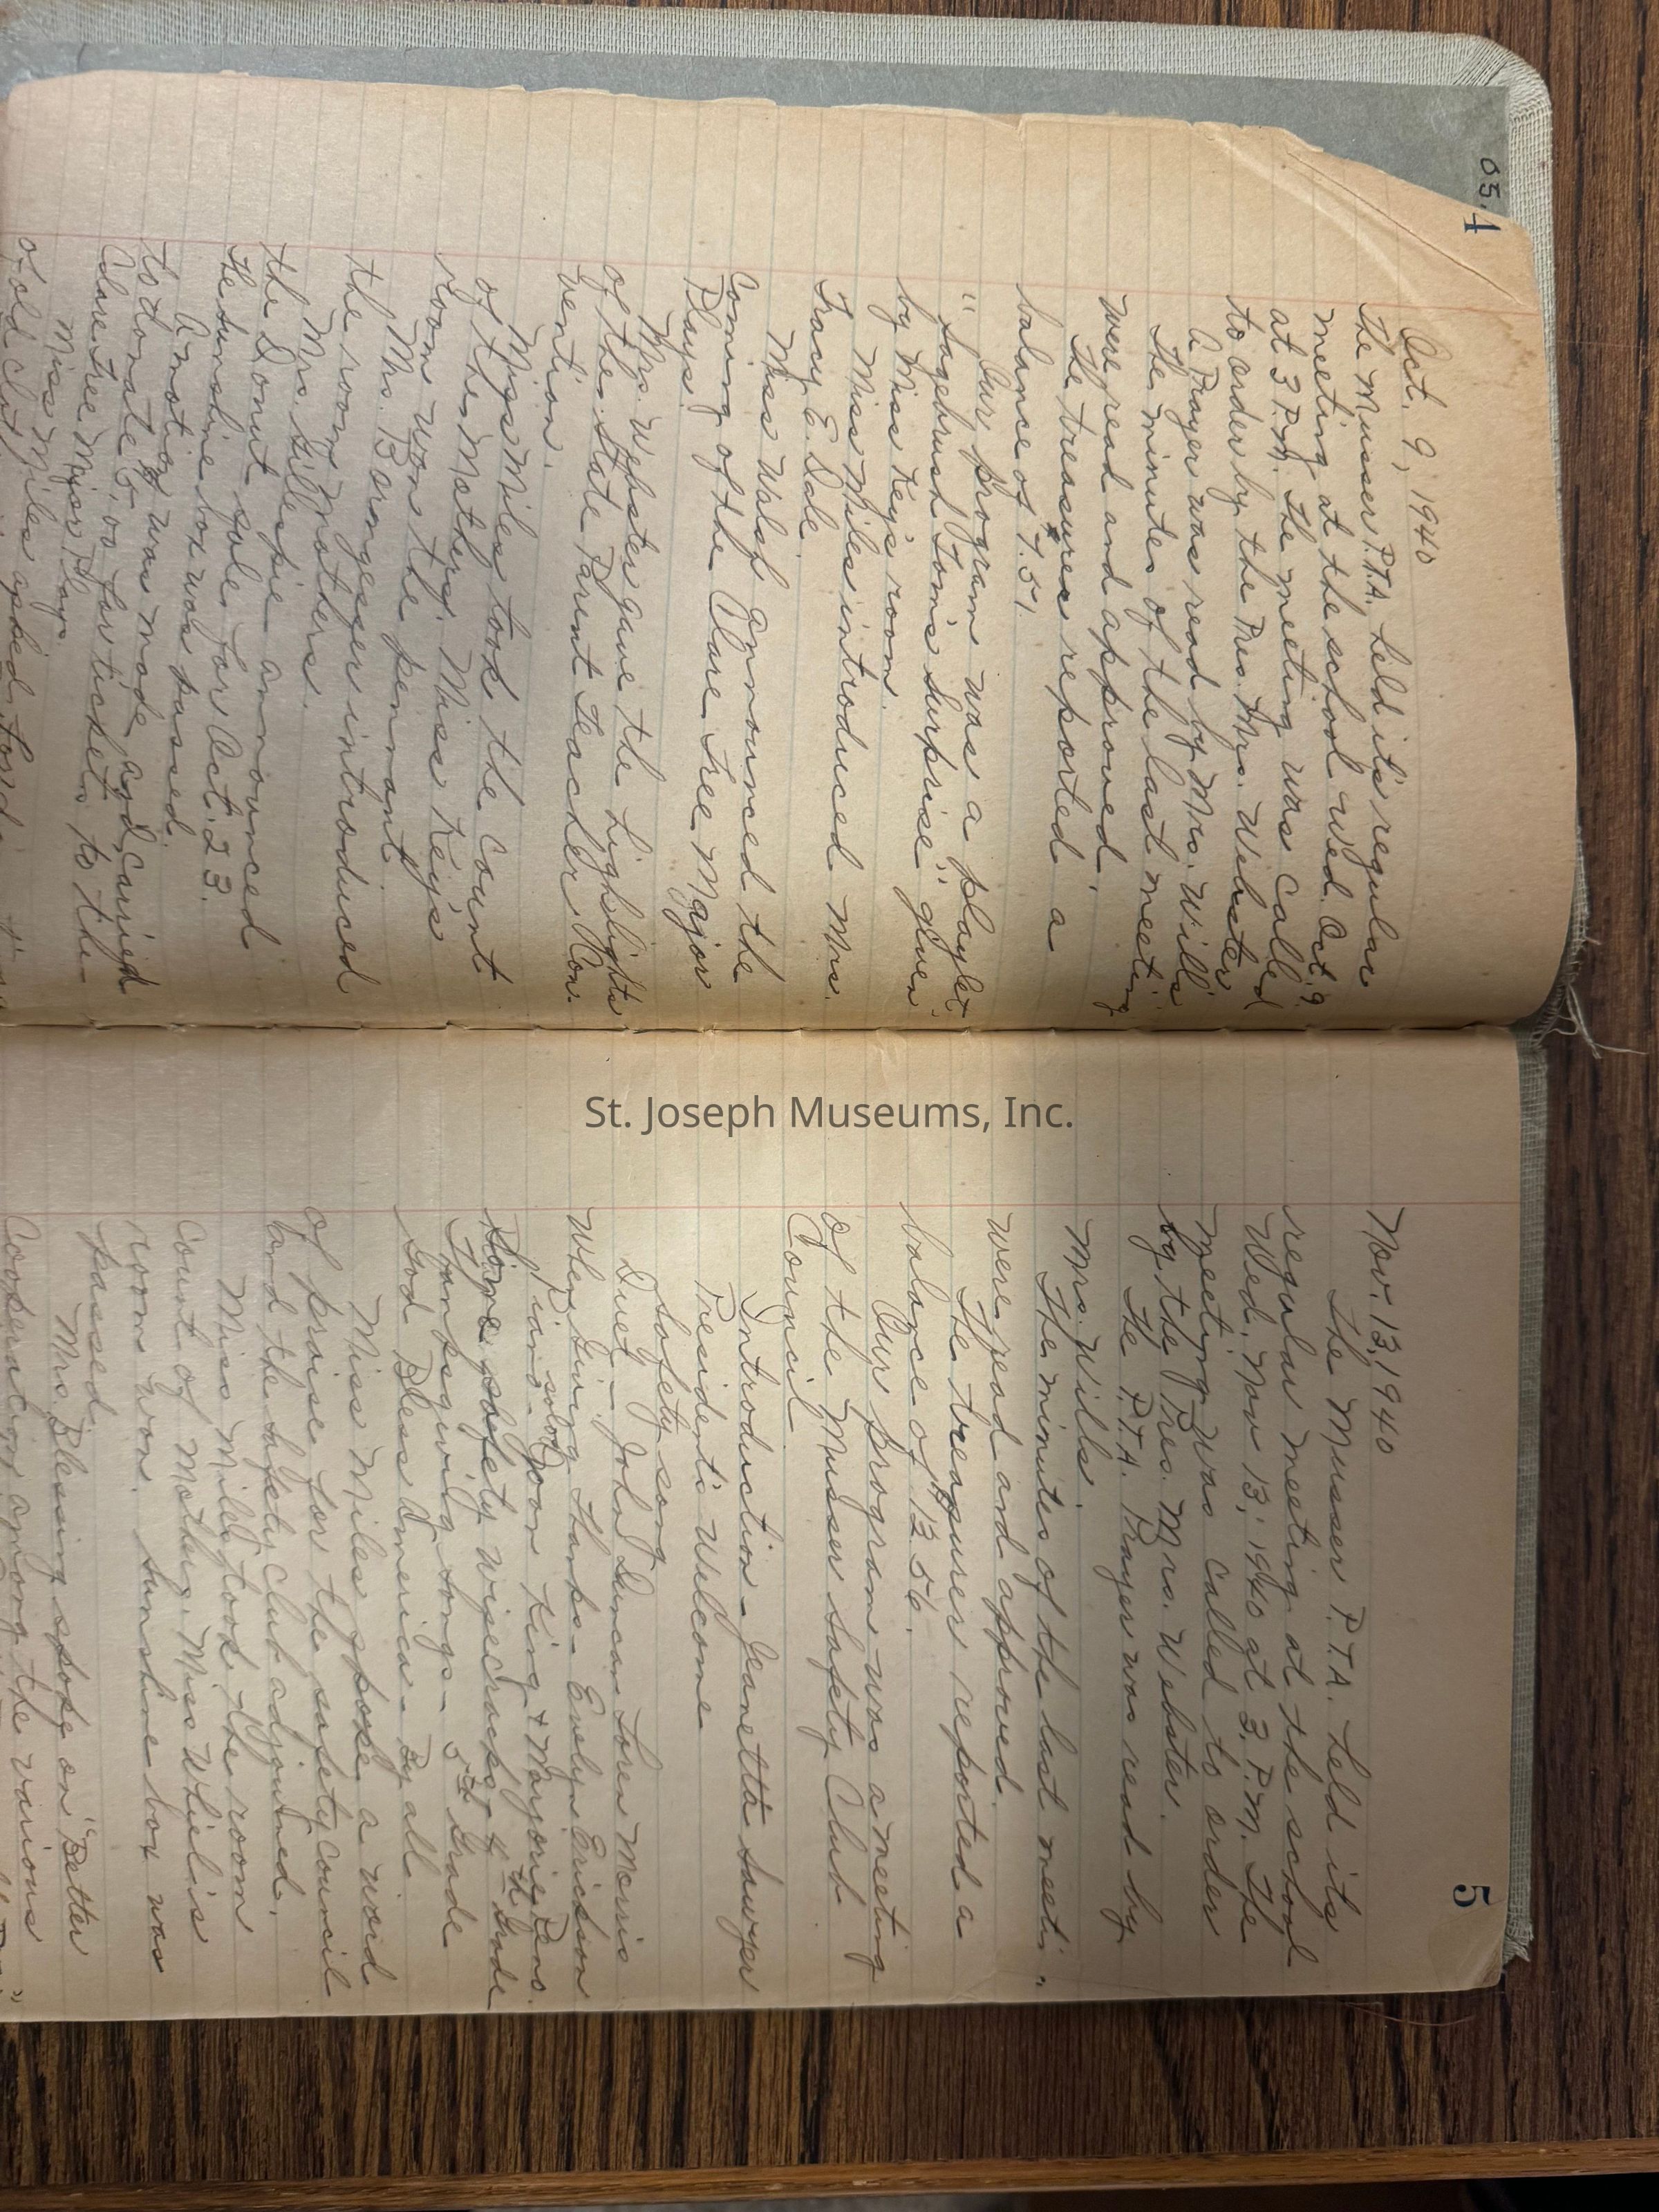 05.
4
Oct. 9, 1940
The Musser P.T.A. held it's regular
meeting at the school Wed. Oct. 9
at 3 P.M. The meeting was called
to order by the Pres. Mrs. Webster
A Prayer was read by Mrs. Wills
The minutes of the last meeting
were read and approved.
The treasures reported a
balance of $7.51.
Our program was a playlet
"Sagebrush Tom's Surprise" given
by Miss Key's room.
Miss Miles introduced Mrs.
Tracy E. Dale.
Miss Walsh announced the
Coming of the Clare Tree Major
Plays.
Mrs. Webster gave the highlights
of the State Parent Teacher Con-
vention.
Miss Miles took the count
of the Mothers. Miss Key's
room won the pennant.
Mrs. Borngesser introduced
the room mothers.
Mrs. Gillespie announced
the Donut sale for Oct. 23.
The sunshine box was passed.
A motion was made and carried
to donate $5.00 for tickets to the
Clare Tree Major Plays.
Miss Miles asked for
of old
St. Joseph Museums, Inc.
5
Nov. 13, 1940
The Musser P.T.A. held its
regular meeting at the school
Wed. Nov 13, 1940 at 3. P.M. The
meeting was called to order
by the Pres. Mrs. Webster.
The P.T.A. Prayer was read by
Mrs. Wills.
The minutes of the last meeti"
were read and approved.
The treasurer reported a
balance of $13.56.
Our program was a meeting
of the Musser Safety Club
Council
Introduction - Jeanetta Sawyer
President's Welcome
Safety song
Duet - John Duncan Loren Morris
When Giving Thanks - Evelyn Erickson
Piano solos Joan King & Marjorie Pens.
Some safety Wisecracks 4th Grade
Thanksgiving songs - 5th Grade
God Bless America - By all
Miss Miles spoke a word
of praise for the safety council
and the safety club adjourned.
Miss Miles took the room
count of Mothers. Miss Whieli's
room won. Sunshine box was
passed.
Mrs. Blessing spoke on "Better
Cooperation among the various